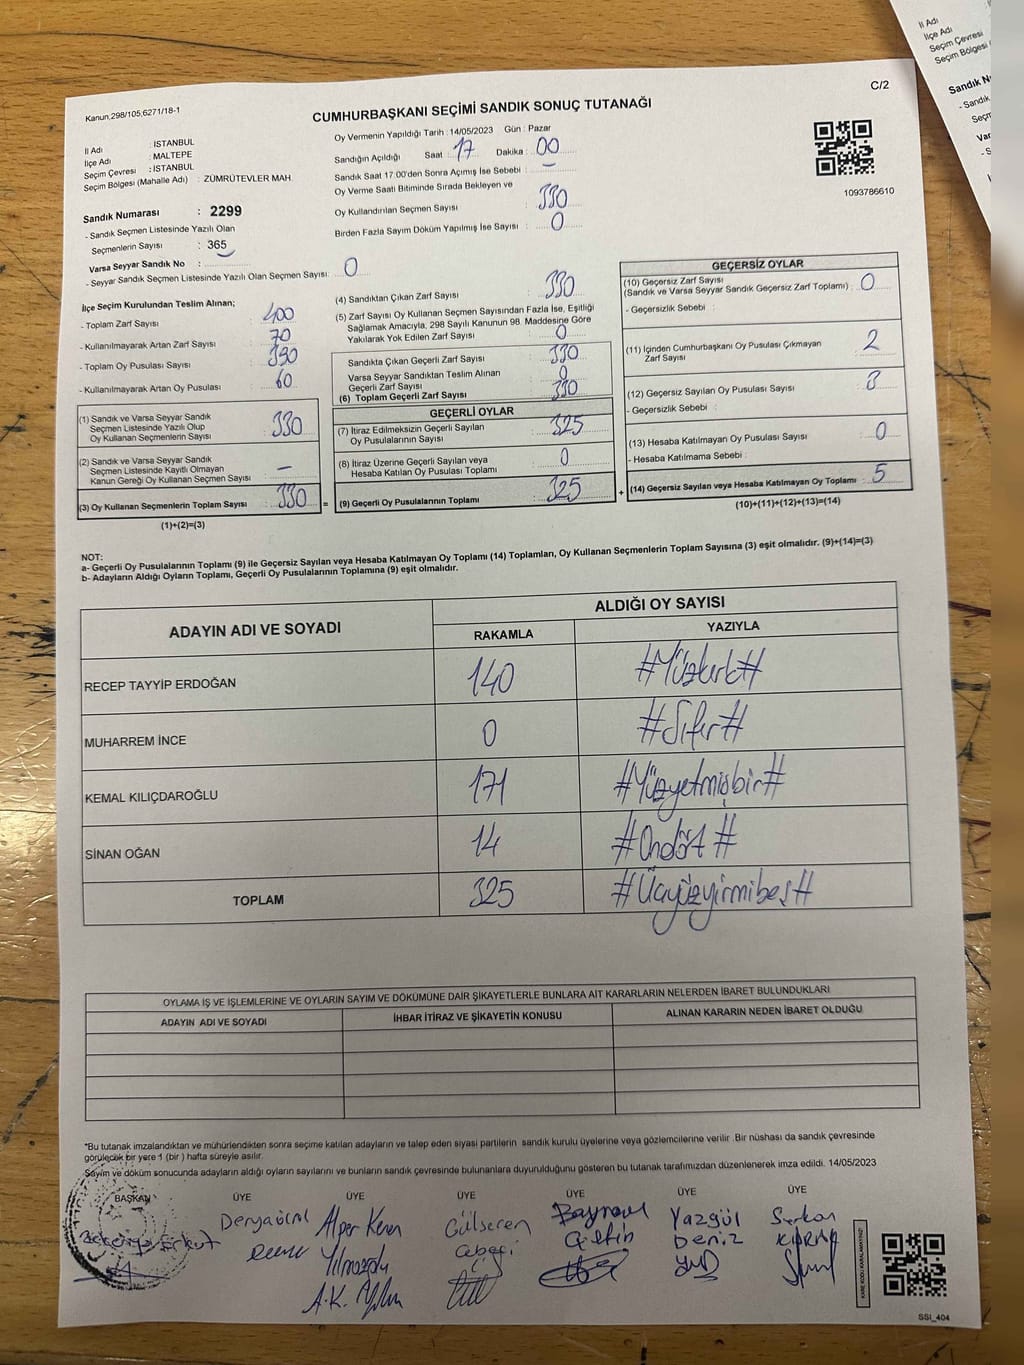 Kanun,298/105,6271/18-1
C/2
CUMHURBAŞKANI SEÇİMİ SANDIK SONUÇ TUTANAĞI
İl Adı : İSTANBUL
İlçe Adı : MALTEPE
Seçim Çevresi : İSTANBUL
Seçim Bölgesi (Mahalle Adı) : ZÜMRÜTEVLER MAH.
Oy Vermenin Yapıldığı Tarih : 14/05/2023 Gün : Pazar
Sandığın Açıldığı Saat : 17 Dakika : 00
Sandık Saat 17.00'den Sonra Açımış İse Sebebi : —
Oy Verme Saati Bitiminde Sırada Bekleyen ve
Oy Kullandırılan Seçmen Sayısı : 330
Birden Fazla Sayım Döküm Yapılmış İse Sayısı : 0
1093786610
Sandık Numarası : 2299
- Sandık Seçmen Listesinde Yazılı Olan
Seçmenlerin Sayısı : 365
Varsa Seyyar Sandık No :
- Seyyar Sandık Seçmen Listesinde Yazılı Olan Seçmen Sayısı : 0
İlçe Seçim Kurulundan Teslim Alınan;
- Toplam Zarf Sayısı : 400
- Kullanılmayarak Artan Zarf Sayısı : 70
- Toplam Oy Pusulası Sayısı : 390
- Kullanılmayarak Artan Oy Pusulası : 60
(1) Sandık ve Varsa Seyyar Sandık
Seçmen Listesinde Yazılı Olup
Oy Kullanan Seçmenlerin Sayısı : 330
(2) Sandık ve Varsa Seyyar Sandık
Seçmen Listesinde Kayıtlı Olmayan
Kanun Gereği Oy Kullanan Seçmen Sayısı : —
(3) Oy Kullanan Seçmenlerin Toplam Sayısı : 330 =
(1)+(2)=(3)
(4) Sandıktan Çıkan Zarf Sayısı : 330
(5) Zarf Sayısı Oy Kullanan Seçmen Sayısından Fazla İse, Eşitliği
Sağlamak Amacıyla, 298 Sayılı Kanunun 98. Maddesine Göre
Yakılarak Yok Edilen Zarf Sayısı : 0
Sandıkta Çıkan Geçerli Zarf Sayısı : 330
Varsa Seyyar Sandıktan Teslim Alınan
Geçerli Zarf Sayısı : 0
(6) Toplam Geçerli Zarf Sayısı : 330
GEÇERLİ OYLAR
(7) İtiraz Edilmeksizin Geçerli Sayılan
Oy Pusulalarının Sayısı : 325
(8) İtiraz Üzerine Geçerli Sayılan veya
Hesaba Katılan Oy Pusulası Toplamı : 0
(9) Geçerli Oy Pusulalarının Toplamı : 325 +
GEÇERSİZ OYLAR
(10) Geçersiz Zarf Sayısı
(Sandık ve Varsa Seyyar Sandık Geçersiz Zarf Toplamı) : 0
- Geçersizlik Sebebi :
(11) İçinden Cumhurbaşkanı Oy Pusulası Çıkmayan
Zarf Sayısı : 2
(12) Geçersiz Sayılan Oy Pusulası Sayısı : 3
- Geçersizlik Sebebi :
(13) Hesaba Katılmayan Oy Pusulası Sayısı : 0
- Hesaba Katılmama Sebebi :
(14) Geçersiz Sayılan veya Hesaba Katılmayan Oy Toplamı : 5
(10)+(11)+(12)+(13)=(14)
NOT:
a- Geçerli Oy Pusulalarının Toplamı (9) ile Geçersiz Sayılan veya Hesaba Katılmayan Oy Toplamı (14) Toplamları, Oy Kullanan Seçmenlerin Toplam Sayısına (3) eşit olmalıdır. (9)+(14)=(3)
b- Adayların Aldığı Oyların Toplamı, Geçerli Oy Pusulalarının Toplamına (9) eşit olmalıdır.
ADAYIN ADI VE SOYADI
ALDIĞI OY SAYISI
RAKAMLA YAZIYLA
RECEP TAYYİP ERDOĞAN 140 #Yüzkırk#
MUHARREM İNCE 0 #Sıfır#
KEMAL KILIÇDAROĞLU 171 #Yüzyetmişbir#
SİNAN OĞAN 14 #Ondört#
TOPLAM 325 #Üçyüzyirmibeş#
OYLAMA İŞ VE İŞLEMLERİNE VE OYLARIN SAYIM VE DÖKÜMÜNE DAİR ŞİKAYETLERLE BUNLARA AİT KARARLARIN NELERDEN İBARET BULUNDUKLARI
ADAYIN ADI VE SOYADI İHBAR İTİRAZ VE ŞİKAYETİN KONUSU ALINAN KARARIN NEDEN İBARET OLDUĞU
*Bu tutanak imzalandıktan ve mühürlendikten sonra seçime katılan adayların ve talep eden siyasi partilerin sandık kurulu üyelerine veya gözlemcilerine verilir .Bir nüshası da sandık çevresinde
görülecek bir yere 1 (bir ) hafta süreyle asılır.
Sayım ve döküm sonucunda adayların aldığı oyların sayılarını ve bunların sandık çevresinde bulunanlara duyurulduğunu gösteren bu tutanak tarafımızdan düzenlenerek imza edildi. 14/05/2023
BAŞKAN ÜYE ÜYE ÜYE ÜYE ÜYE ÜYE
Erkut Derya Alper Kenan Gülseren Bayram Yazgül Serkan
Yılmazoğlu Çetin Deniz
A.K.
KARE KODU KARALAMAYINIZ!
SSI_404
İl Adı
İlçe Adı
Seçim Çevresi
Seçim Bölgesi